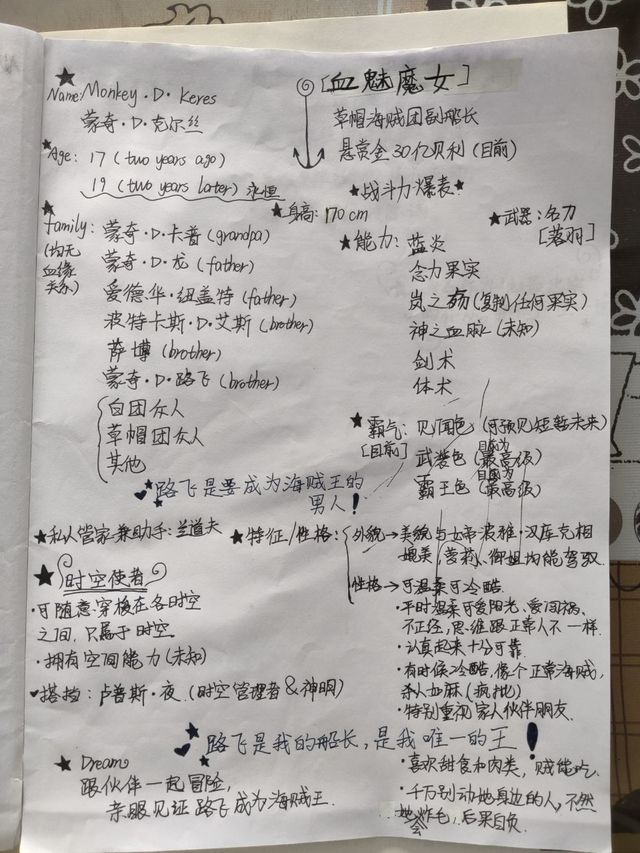 Name: Monkey · D · Keres
蒙奇 · D · 克尔丝
Age: 17 (two years ago)
19 (two years later) 永恒
[血魅魔女]
草帽海贼团副船长
悬赏金30亿贝利 (目前)
战斗力爆表
身高: 170cm
武器: 名刀
[落羽]
family: 蒙奇 · D · 卡普 (grandpa)
(均无血缘关系)
蒙奇 · D · 龙 (father)
爱德华 · 纽盖特 (father)
波特卡斯 · D · 艾斯 (brother)
萨博 (brother)
蒙奇 · D · 路飞 (brother)
白团众人
草帽团众人
其他
能力: 蓝炎
念力果实
岚之殇 (复制任何果实)
神之血脉 (未知)
剑术
体术
霸气: 见闻色 (可预见短暂未来)
[目前] 武装色 (最高级)
霸王色 (最高级)
路飞是要成为海贼王的
男人!
私人管家兼助手: 兰道夫
特征/性格: 外貌→美貌与女帝波雅·汉库克相
媲美, 萝莉、御姐均能驾驭.
时空使者
·可随意穿梭在各时空
之间, 只属于时空
·拥有空间能力 (未知)
搭档: 卢普斯·夜. (时空管理者&神明)
性格→可温柔可冷酷.
·平时温柔可爱阳光、爱闯祸、
不正经, 思维跟正常人不一样.
·认真起来十分可靠.
·有时候冷酷, 像个正常海贼,
杀人如麻 (疯批)
·特别重视家人伙伴朋友.
路飞是我的船长, 是我唯一的王!
·喜欢甜食和肉类, 贼能吃.
·千万别动她身边的人, 不然
她炸毛, 后果自负.
Dream
跟伙伴一起冒险,
亲眼见证路飞成为海贼王.